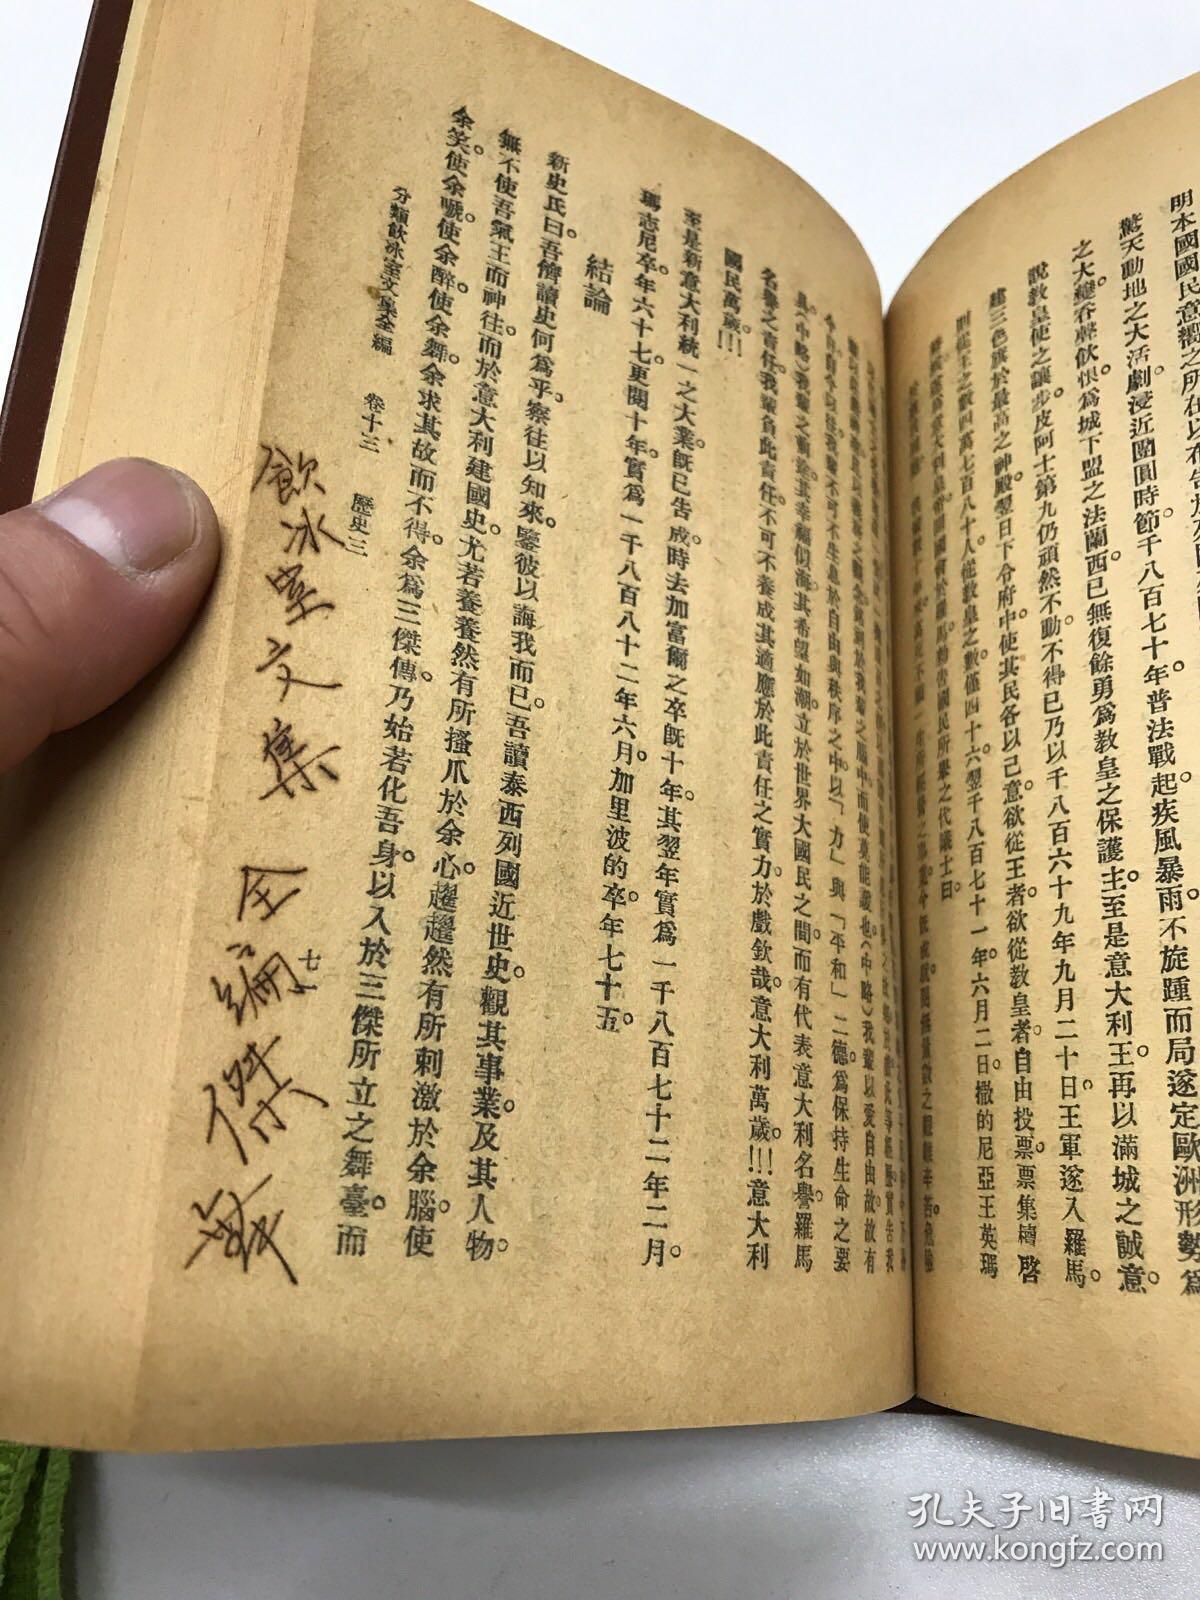 驚天動地之大活劇。浸近團圓時節。千八百七十年。普法戰起。疾風暴雨。不旋踵而局遂定。歐洲形勢爲
之大變。吞聲飲恨。爲城下盟之法蘭西。已無復餘勇爲教皇之保護主。至是意大利王再以滿城之誠意。
說教皇使之讓步。皮阿士第九仍頑然不動。不得已乃以千八百六十九年九月二十日。王軍遂入羅馬。
建三色旗於最高之神殿。翌日下令府中。使其民各以己意。欲從王者。欲從教皇者。自由投票。票集檀啓
則從王之數四萬七百八十人。從教皇之數僅四十六。翌千八百七十一年。六月二日。撒的尼亞王英瑪
今日前今以往我輩不可不生息於自由與秩序之中。以「力」與「平和」二德爲保持生命之要
具(中略)我輩之前途。其幸福似海。其希望如潮。立於世界大國民之間。而有代表意大利名譽羅馬
名譽之責任。我輩負此責任。不可不養成其適應於此責任之實力。於戲欽哉。意大利萬歲!!!意大利
國民萬歲!!!
至是新意大利統一之大業。旣已告成。時去加富爾之卒旣十年。其翌年實爲一千八百七十二年二月。
瑪志尼卒。年六十七。更閱十年。實爲一千八百八十二年六月。加里波的卒。年七十五。
結論
新史氏曰。吾儕讀史何爲乎。察往以知來。鑒彼以誨我而已。吾讀泰西列國近世史。觀其事業。及其人物。
無不使吾氣王而神往。而於意大利建國史。尤若養養然有所搔爪於余心。趯趯然有所刺激於余腦。使
余笑。使余嗁。使余醉。使余舞。余求其故而不得。余爲三傑傳。乃始若化吾身以入於三傑所立之舞臺。而
分類飲冰室文集全編 卷十三 歷史三 七一
飲冰室文集全編
孔夫子旧书网
www.kongfz.com